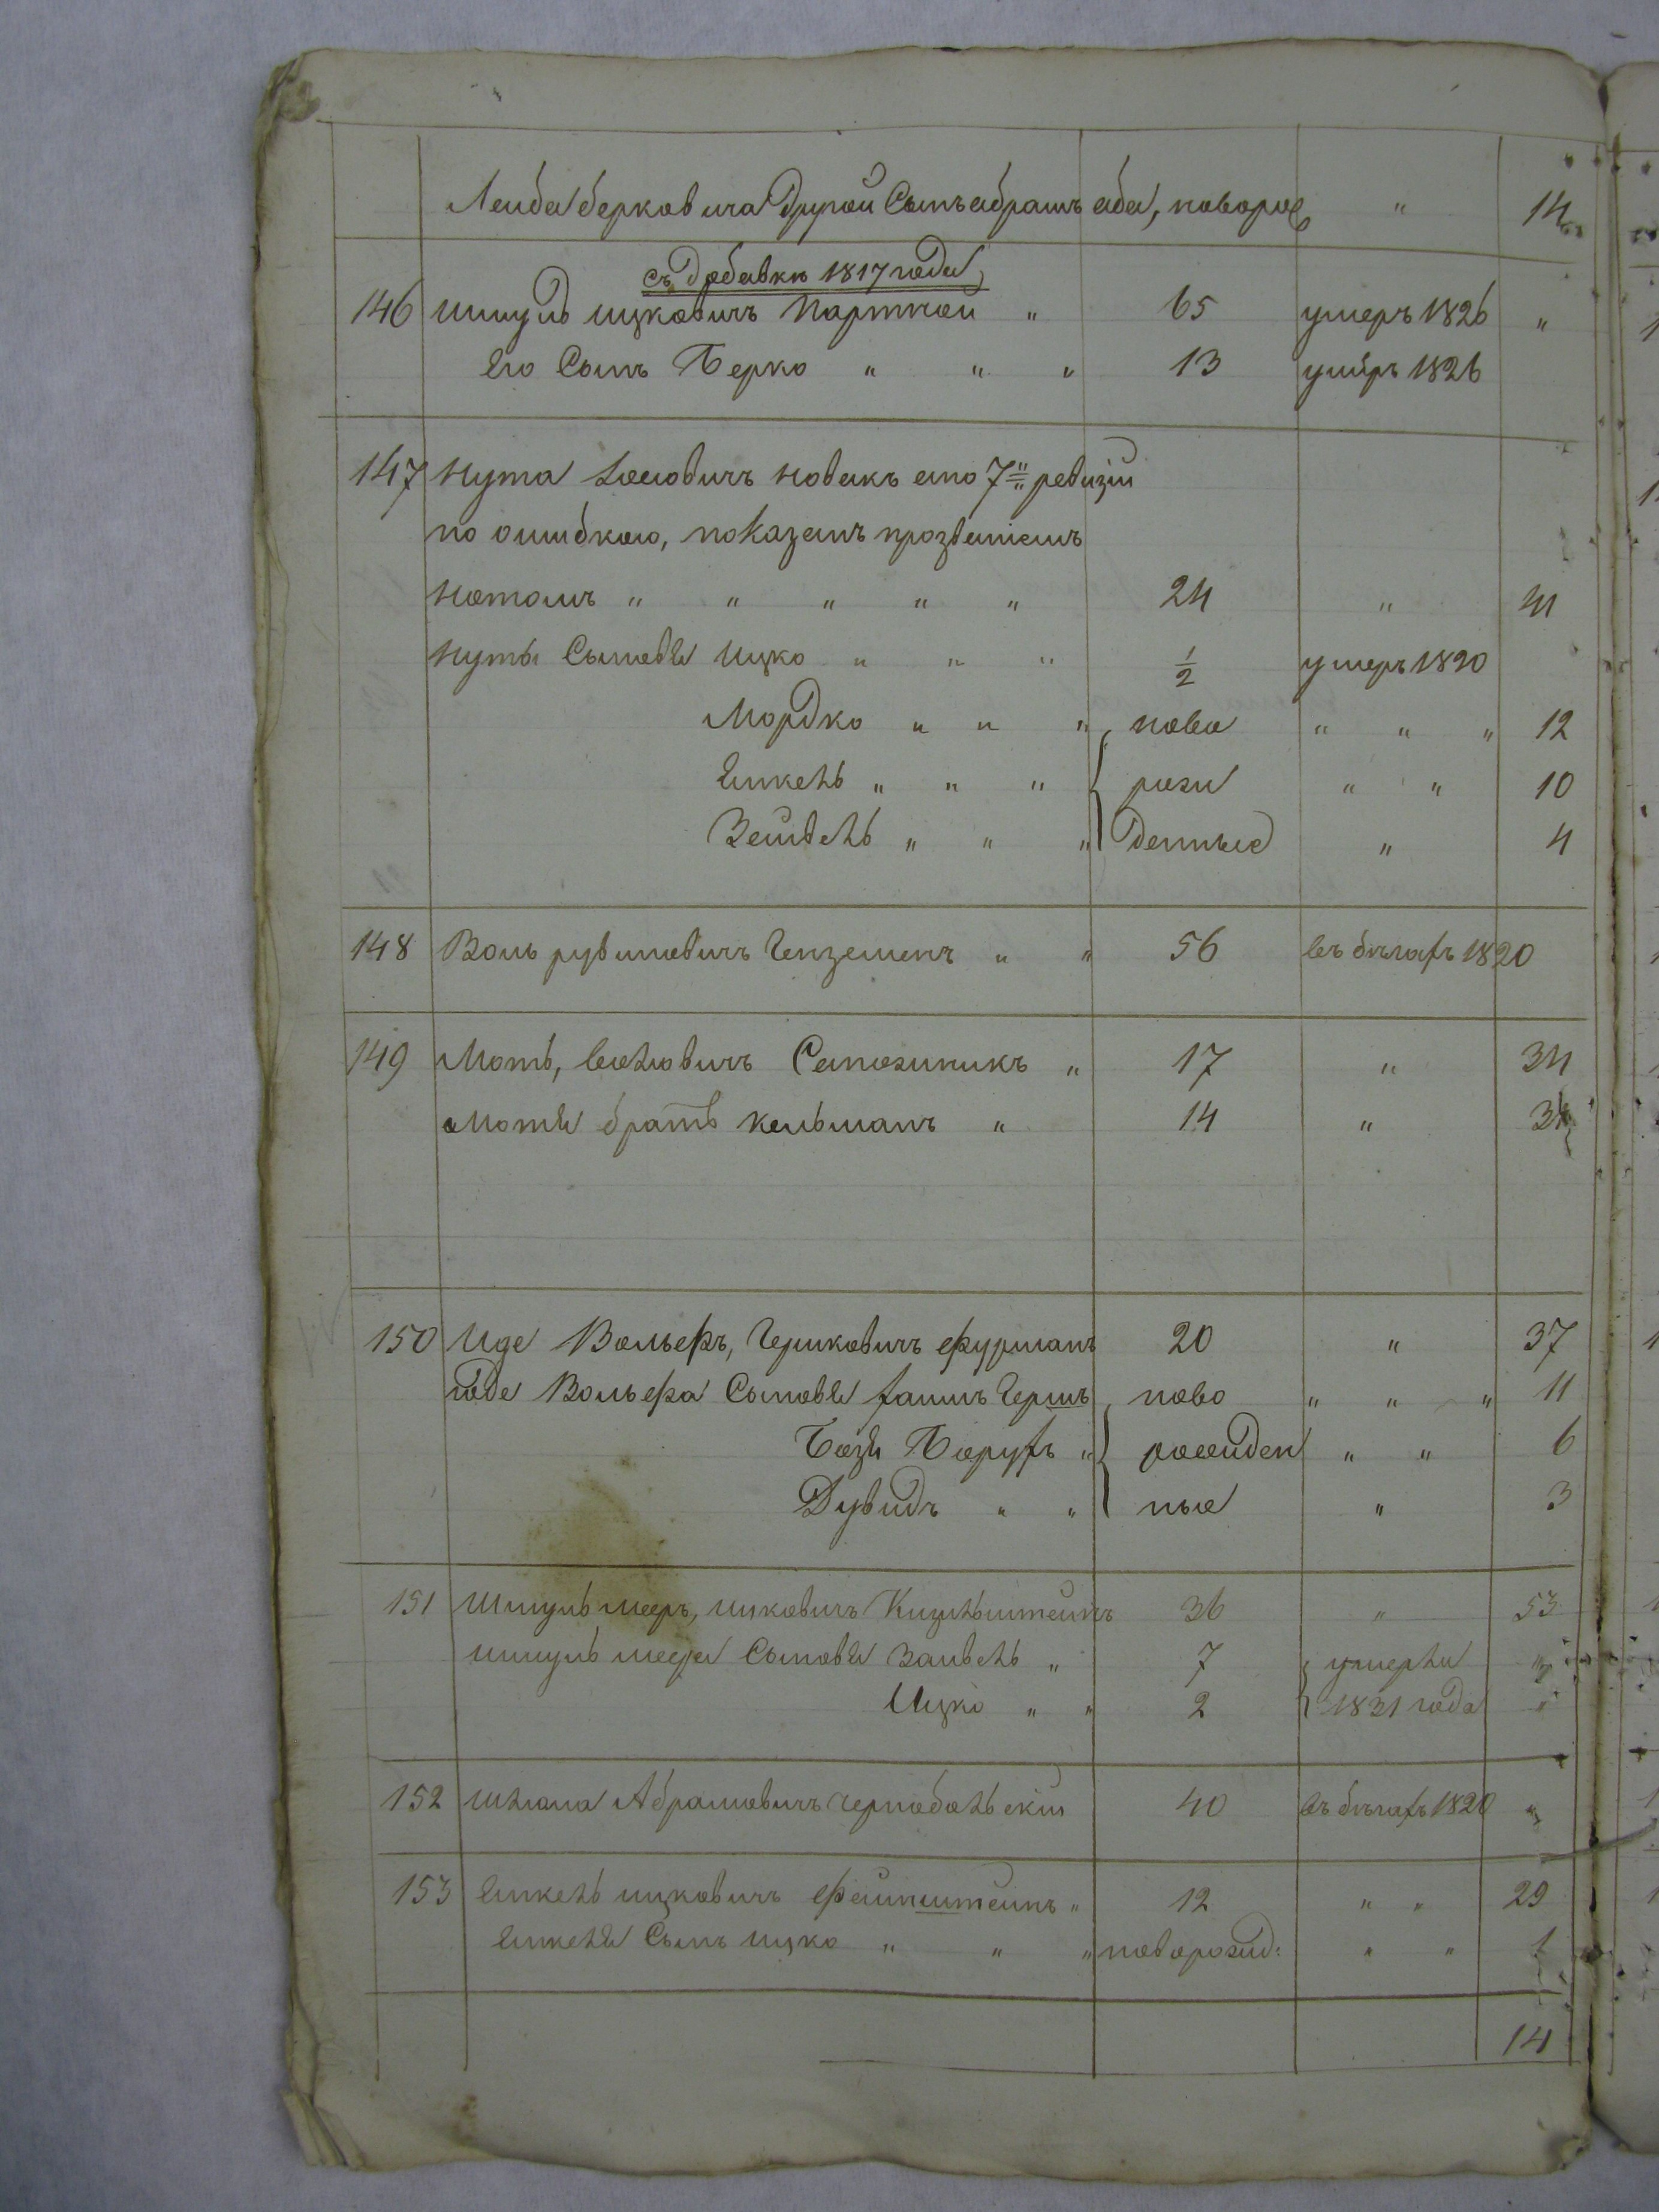 Лейба берковича другой Сынъ абрамъ аба, новорож " 14
съ добавки 1817 года
146 Шмуль ицковичъ Партной " 65 умеръ 1826 "
Его Сынъ Берко " " " 13 умеръ 1826
147 Нута новакъ ено 7й ревизіи
по ошибкою, показанъ прозваніемъ
" " " " " 24 " 41
Нуты Сыновья Ицко " " " 1/2 умеръ 1820
Мордко " " " ново " " " 12
Янкель " " " рожи " " 10
Зейвель " " " денные " 4
148 Воль рувиновичъ " " 56 въ бѣгахъ 1820
149 Мошь, Сапожникъ " 17 " 34
Моти братъ кельманъ " 14 "
150 Иде Вольфъ, Гершковичъ фурманъ 20 " 37
Юде Вольфа Сыновья хаимъ Гершъ ново " " " 11
Борухъ " рожиден " " 6
Дувидъ " " ные " 3
151 Шмуль мееръ, ицковичъ 36 " 53
шмуль меера Сыновья Занвель " 7 умерли "
Ицко " " 2 1821 года "
152 Шлиома Абрамовичъ чернобольскій 40 въ бѣгахъ 1820 "
153 Янкель ицковичъ Фейнштейнъ " 12 " " 29
Янкеля Сынъ ицко " " " новорожид: " " 1
14